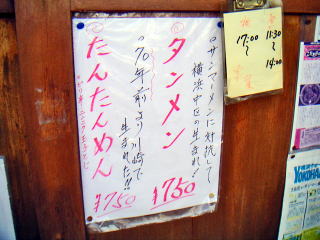 サンマーメンに対抗して
横浜中区の生まれ!!
タンメン
¥750
70年前より川崎で
生まれた!!
たんたんめん
¥750
11:30
〜
14:00
17:00
〜
YOKOHAMA